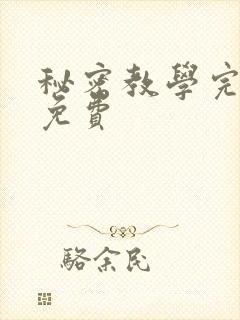 秘密教學完
免費
駱余民